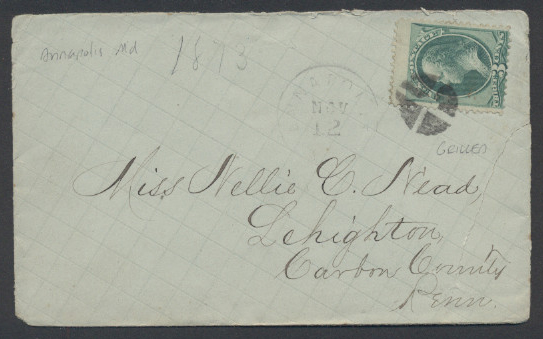 Annapolis Md
1873
NOV
12
GRILLED
Miss Nellie C. Nead,
Lehighton,
Carbon County
Penn.